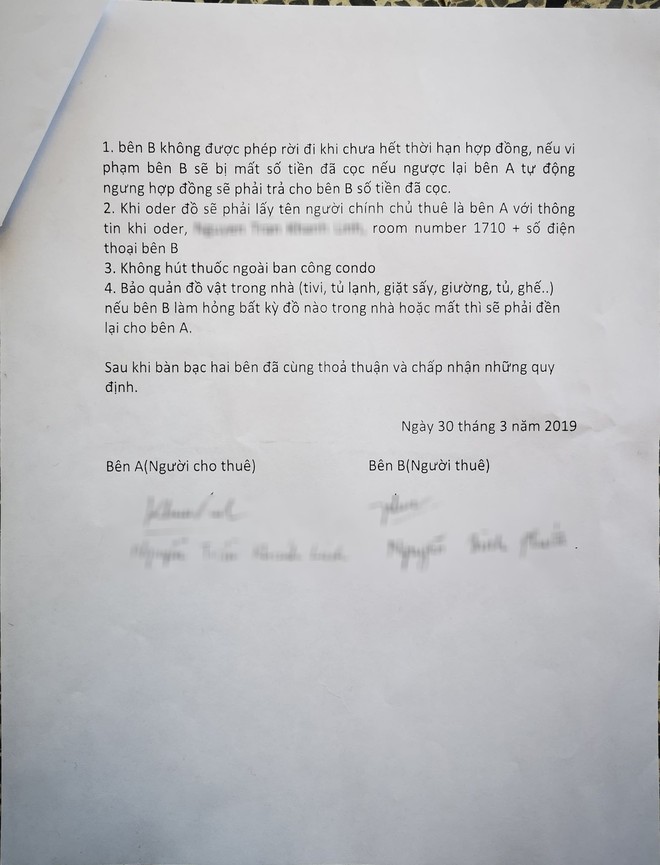 1. bên B không được phép rời đi khi chưa hết thời hạn hợp đồng, nếu vi
phạm bên B sẽ bị mất số tiền đã cọc nếu ngược lại bên A tự động
ngưng hợp đồng sẽ phải trả cho bên B số tiền đã cọc.
2. Khi oder đồ sẽ phải lấy tên người chính chủ thuê là bên A với thông
tin khi oder, room number 1710 + số điện
thoại bên B
3. Không hút thuốc ngoài ban công condo
4. Bảo quản đồ vật trong nhà (tivi, tủ lạnh, giặt sấy, giường, tủ, ghế..)
nếu bên B làm hỏng bất kỳ đồ nào trong nhà hoặc mất thì sẽ phải đền
lại cho bên A.
Sau khi bàn bạc hai bên đã cùng thoả thuận và chấp nhận những quy
định.
Ngày 30 tháng 3 năm 2019
Bên A(Người cho thuê) Bên B(Người thuê)